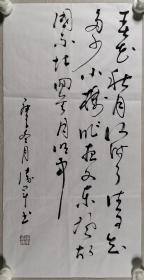 春花秋月何时了往事知
多少小楼昨夜又东风故
国不堪回首月明中